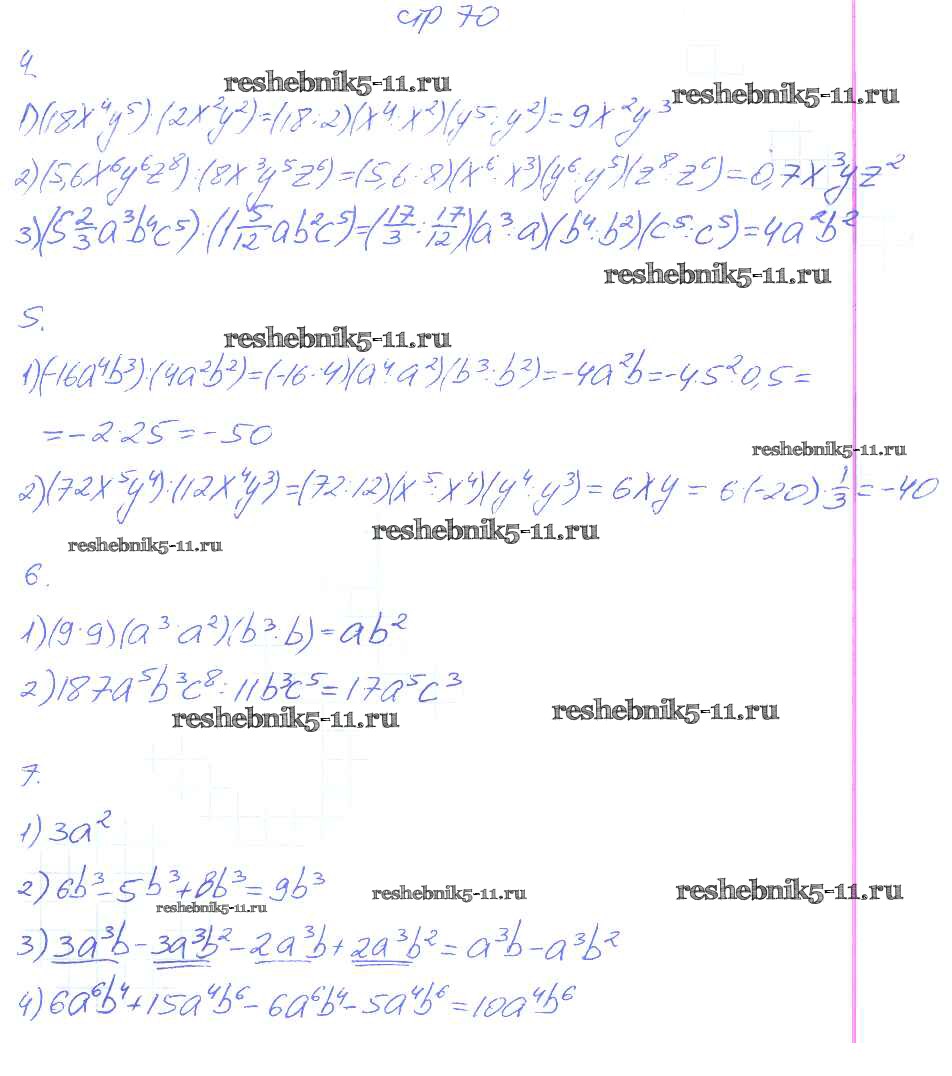 стр 70
4
reshebnik5-11.ru
1) (18x⁴y⁵) : (2x²y²) = (18 : 2)(x⁴ : x²)(y⁵ : y²) = 9x²y³
reshebnik5-11.ru
2) (5,6x⁶y⁶z⁸) : (8x³y⁵z⁶) = (5,6 : 8)(x⁶ : x³)(y⁶ : y⁵)(z⁸ : z⁶) = 0,7x³yz²
3) (5 2/3 a³b⁴c⁵) : (1 5/12 ab²c⁵) = (17/3 : 17/12)(a³ : a)(b⁴ : b²)(c⁵ : c⁵) = 4a²b²
reshebnik5-11.ru
5.
reshebnik5-11.ru
1) (-16a⁴b³) : (4a²b²) = (-16 : 4)(a⁴ : a²)(b³ : b²) = -4a²b = -4·5²·0,5 =
= -2·25 = -50
reshebnik5-11.ru
2) (72x⁵y⁴) : (12x⁴y³) = (72 : 12)(x⁵ : x⁴)(y⁴ : y³) = 6xy = 6·(-20)·1/3 = -40
reshebnik5-11.ru
reshebnik5-11.ru
6.
1) (9 : 9)(a³ : a²)(b³ : b) = ab²
2) 187a⁵b³c⁸ : 11b³c⁵ = 17a⁵c³
reshebnik5-11.ru
reshebnik5-11.ru
7.
1) 3a²
2) 6b³ - 5b³ + 8b³ = 9b³
reshebnik5-11.ru
reshebnik5-11.ru
reshebnik5-11.ru
3) 3a³b - 3a³b² - 2a³b + 2a³b² = a³b - a³b²
4) 6a⁶b⁴ + 15a⁴b⁶ - 6a⁶b⁴ - 5a⁴b⁶ = 10a⁴b⁶